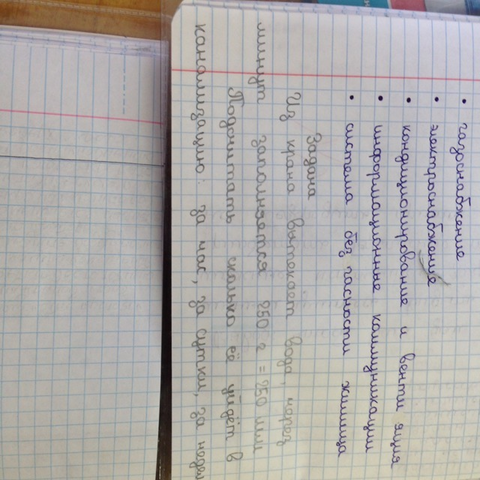 • газоснабжение
• электроснабжение
• кондиционирование и венти яция
• информационные коммуникации
• система без пасности жилища
Задача
Из крана вытекает вода, через
минут заполняется 250 г = 250 мл
Подсчитать сколько её уйдёт в
канализацию: за час, за сутки, за неде